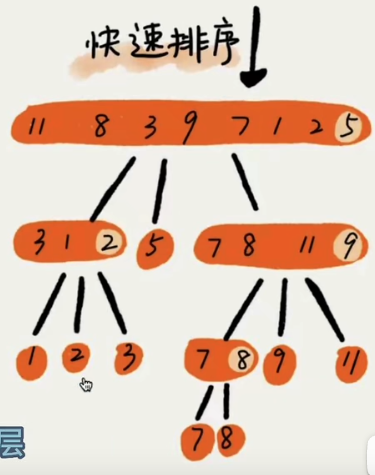 快速排序
11 8 3 9 7 1 2 5
3 1 2 5 7 8 11 9
1 2 3 7 8 9 11
7 8
层